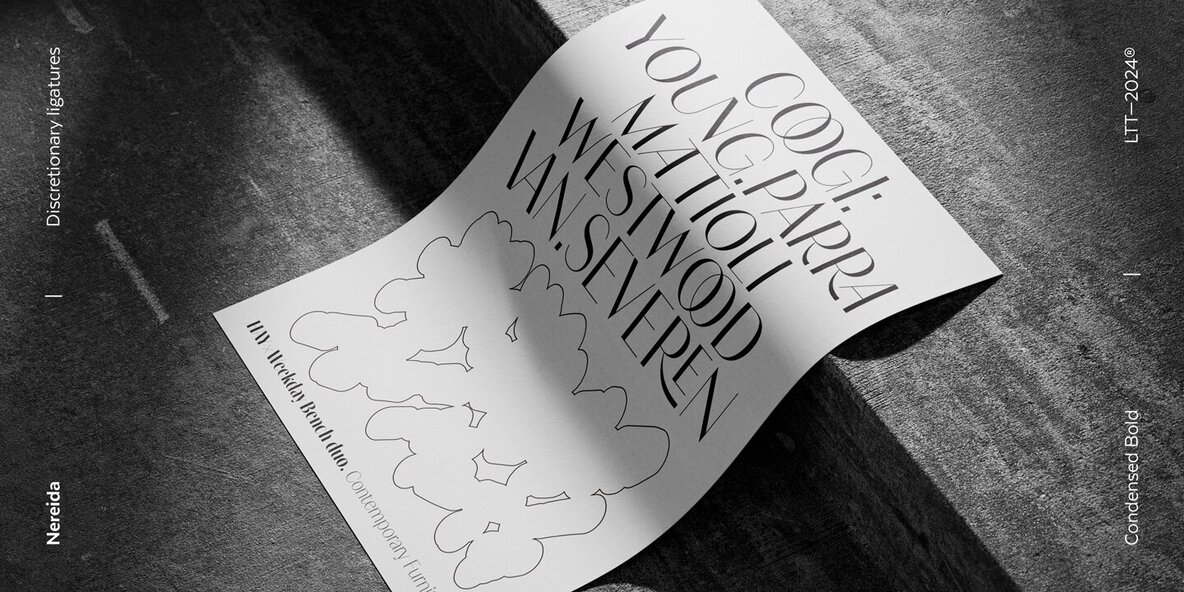 Discretionary ligatures
|
Nereida
COOGI:
YOUNG.PARRA
MATIOLI
WESTWOOD
VAN.SEVEREN
HAY×Weekday Bench duo. Contemporary
LTT—2024®
|
Condensed Bold